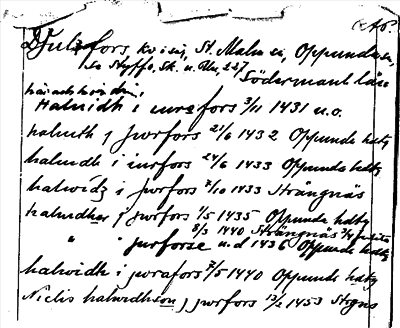 Djulöfors, kv i sj, St. Malm sn, Oppunda
Se Styffe, Sk. u. Un., 227
Södermanl. län
häradshövding
Halwidh i iurafors 3/11 1431 u.o.
halwith j jwrfors 21/6 1432 Oppunda hdtg
halwidh i iurfors 24/6 1433 Oppunda hdtg
halwidz i jwrfors 7/10 1433 Strängnäs
halwidher j jwrfors 1/5 1435 Oppunda hdtg
8/3 1440 Strängnäs
" " jurforse u.d 1436 Oppunda hdtg
halwidh i jwrafors 7/5 1440 Oppunda hdtg
Niclis halwidhson j jwrfors 13/2 1453 Stgns